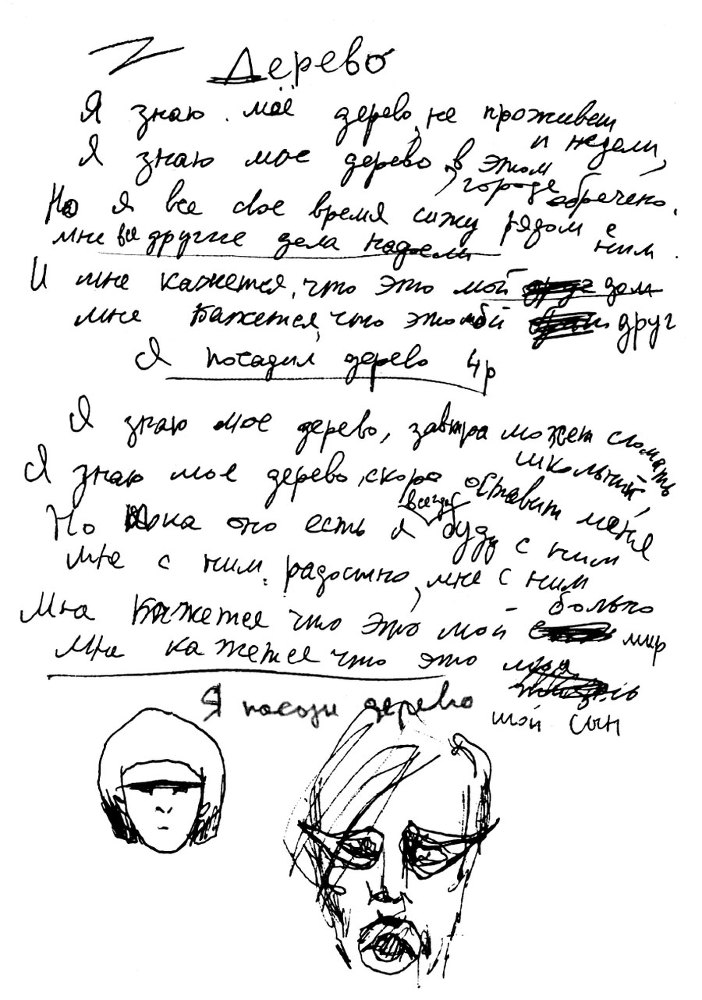 Дерево
Я знаю моё дерево, не проживет и недели,
Я знаю мое дерево, в этом городе обречено.
Но я все свое время сижу рядом с ним.
мне все другие дела надоели
И мне кажется, что это мой дом
мне кажется, что это мой друг
Я посадил дерево 4р
Я знаю мое дерево, завтра может сломать школьник,
Я знаю мое дерево, скоро оставит меня
Но пока оно есть я всегда буду с ним
мне с ним радостно, мне с ним больно
Мне кажется что это мой мир
Мне кажется что это
мой сын
Я посади дерево